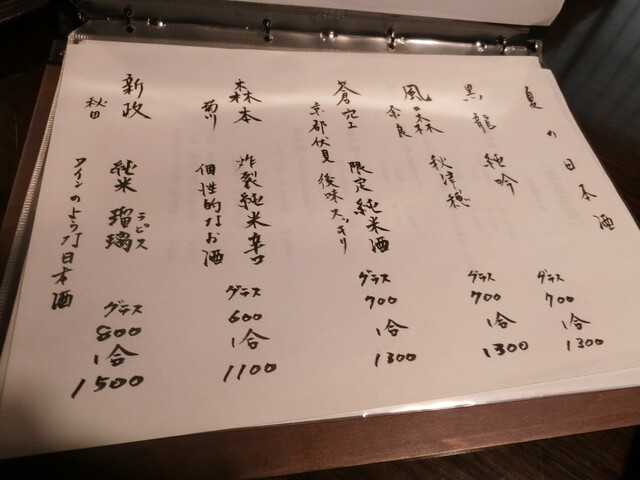 夏の日本酒
黒龍 純吟
グラス
700
1合
1300
風の森 秋津穂
奈良
グラス
700
1合
1300
蒼空 限定純米酒
京都伏見 後味スッキリ
グラス
700
1合
1300
森本 炸裂純米辛口
菊川 個性的なお酒
グラス
600
1合
1100
新政 純米 瑠璃
ラピス
秋田 ワインのような日本酒
グラス
800
1合
1500